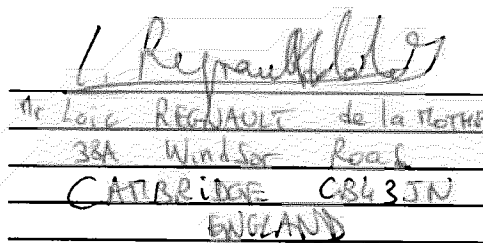 L. Regnault
Mr Loic REGNAULT de la MOTHE
38A Windsor Road
CAMBRIDGE CB43JN
ENGLAND